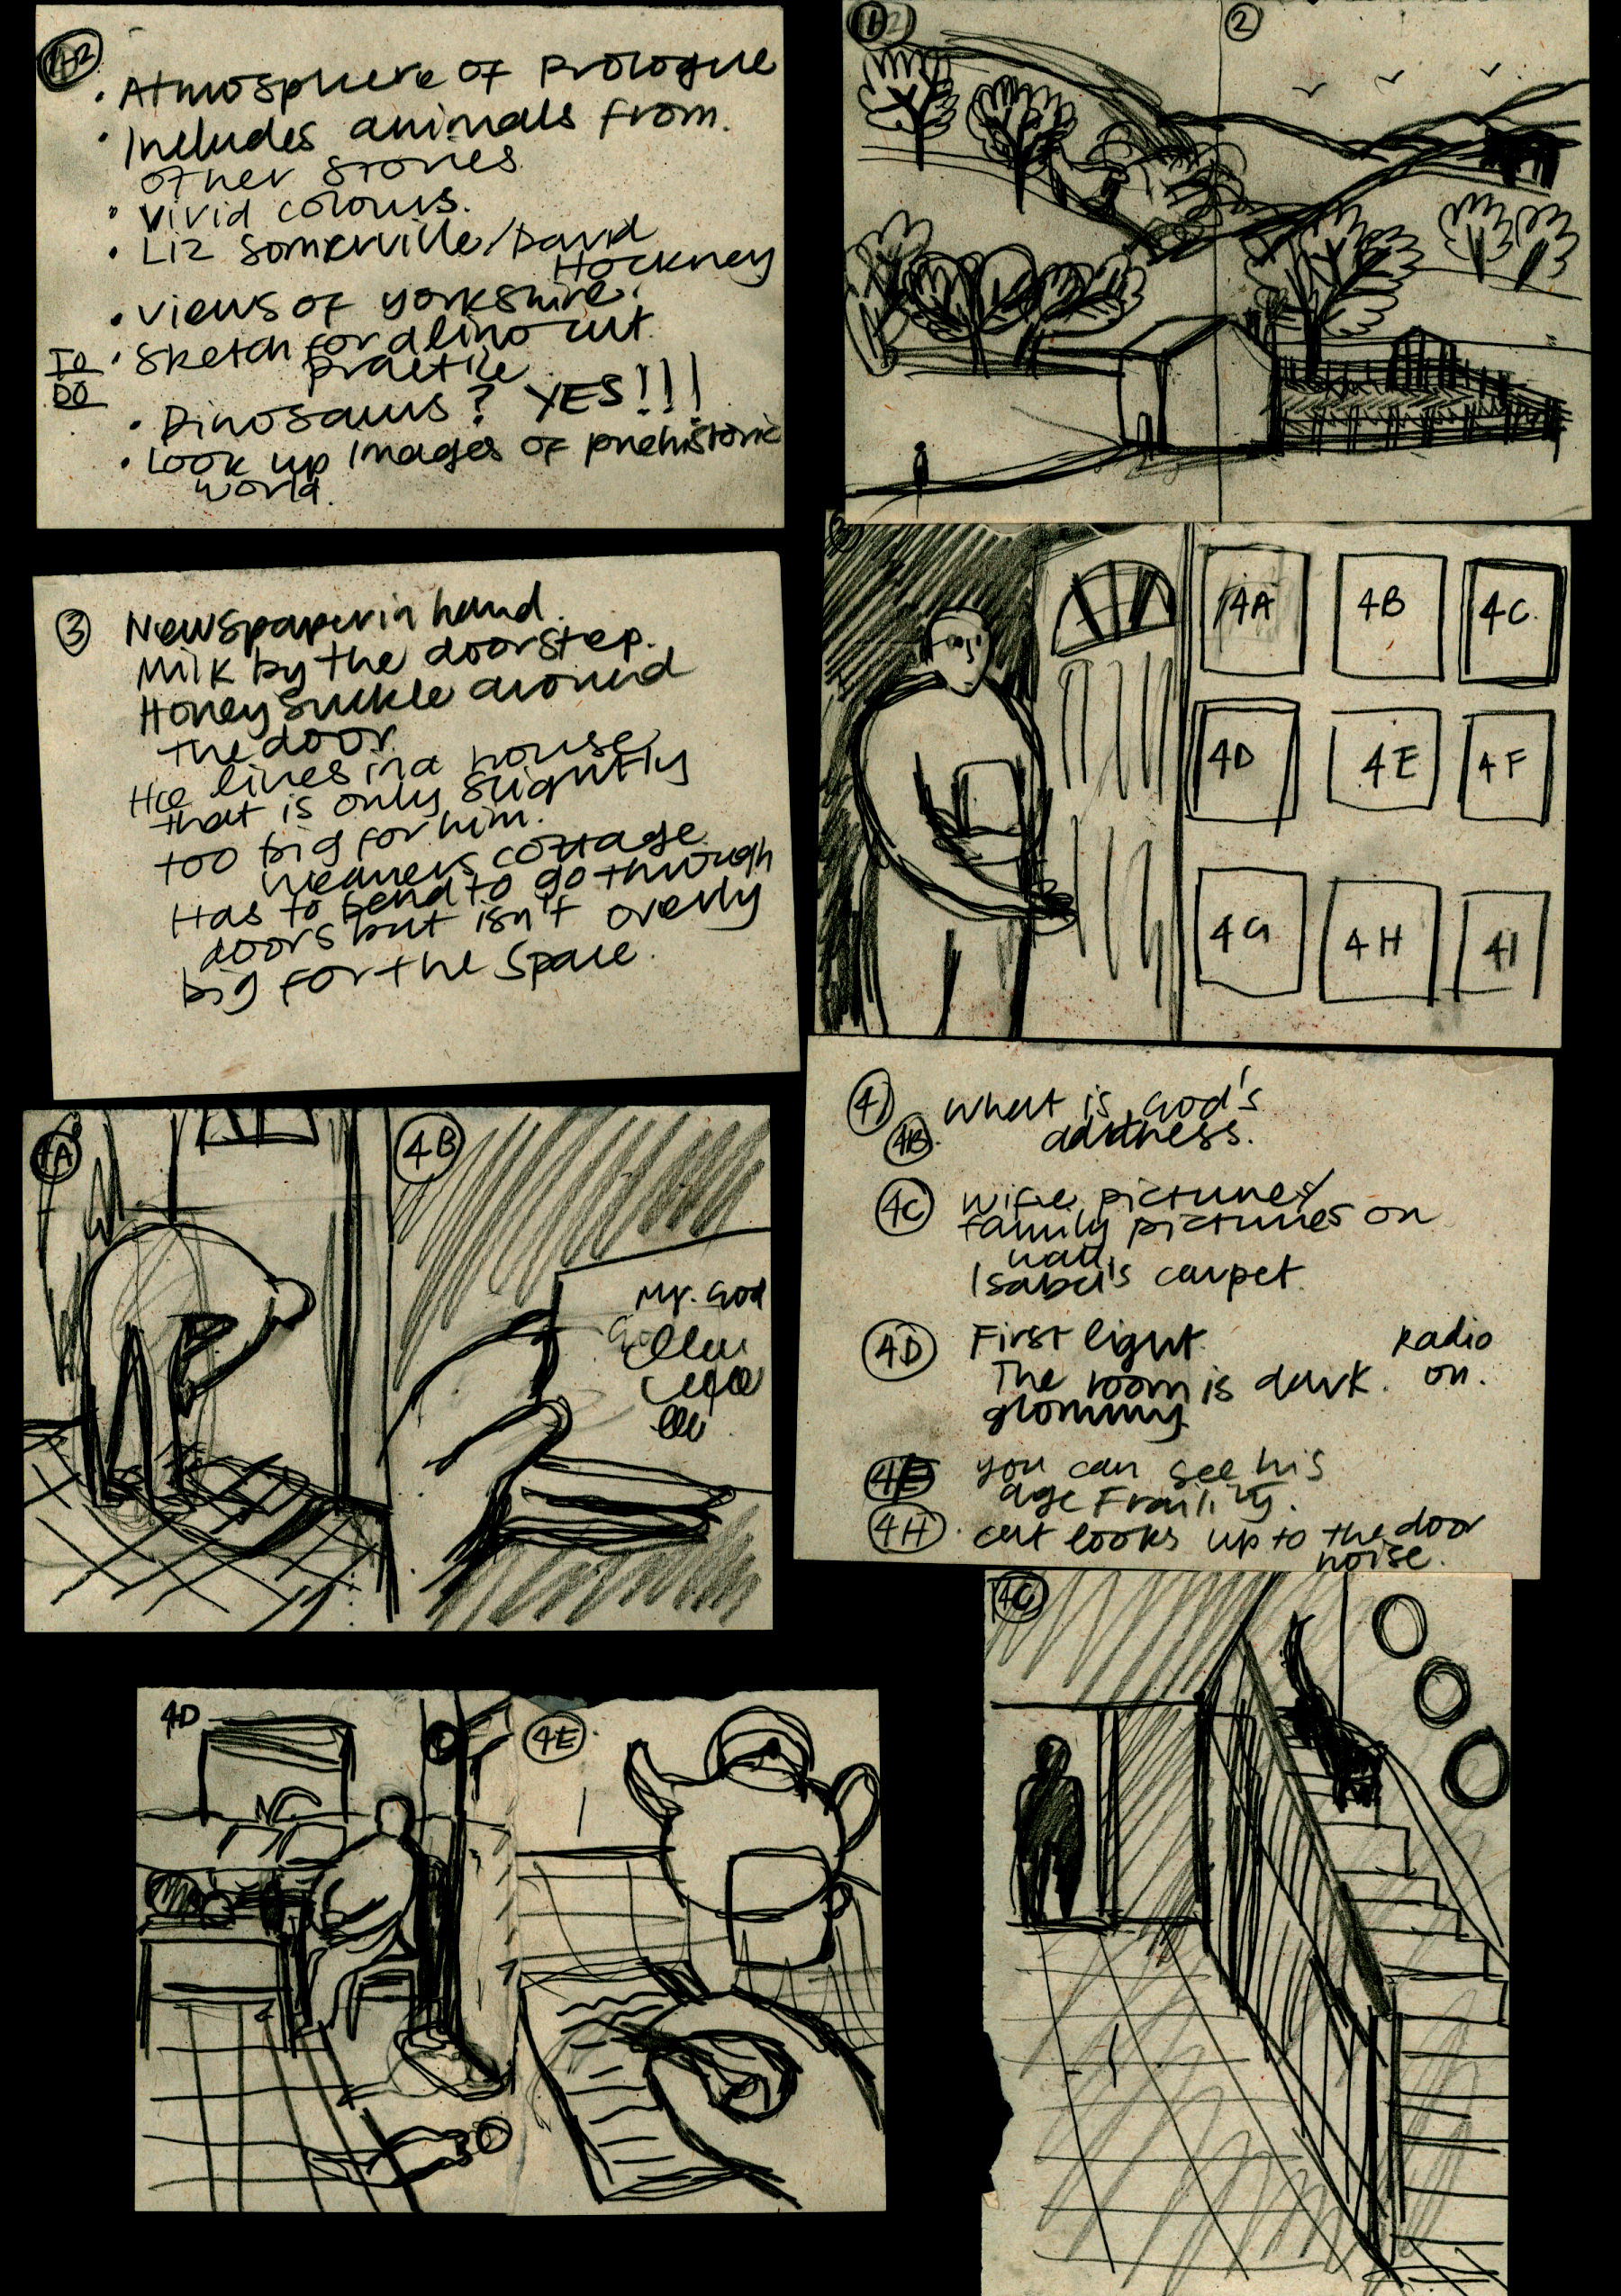 1+2
• Atmosphere of prologue
• Includes animals from
other stories
• Vivid colours.
• Liz Somerville/David
Hockney
• Views of Yorkshire.
TO DO • Sketch for a lino cut
practice
• Dinosaurs? YES!!!
• Look up images of prehistoric
world.
1
2
3 Newspaper in hand.
Milk by the doorstep.
Honeysuckle around
the door
He lives in a house
that is only slightly
too big for him.
weavers cottage
Has to bend to go through
doors but isn't overly
big for the space.
3
4A 4B 4C
4D 4E 4F
4G 4H 4I
4A
4B
Mr. God
4)
4B. What is God's
address.
4C wife pictures/
family pictures on
wall,
Isabel's carpet.
4D First light. Radio
The room is dark. on.
gloomy
4E you can see his
age Frailty.
4H. cat looks up to the door
noise.
4C
4D
4E